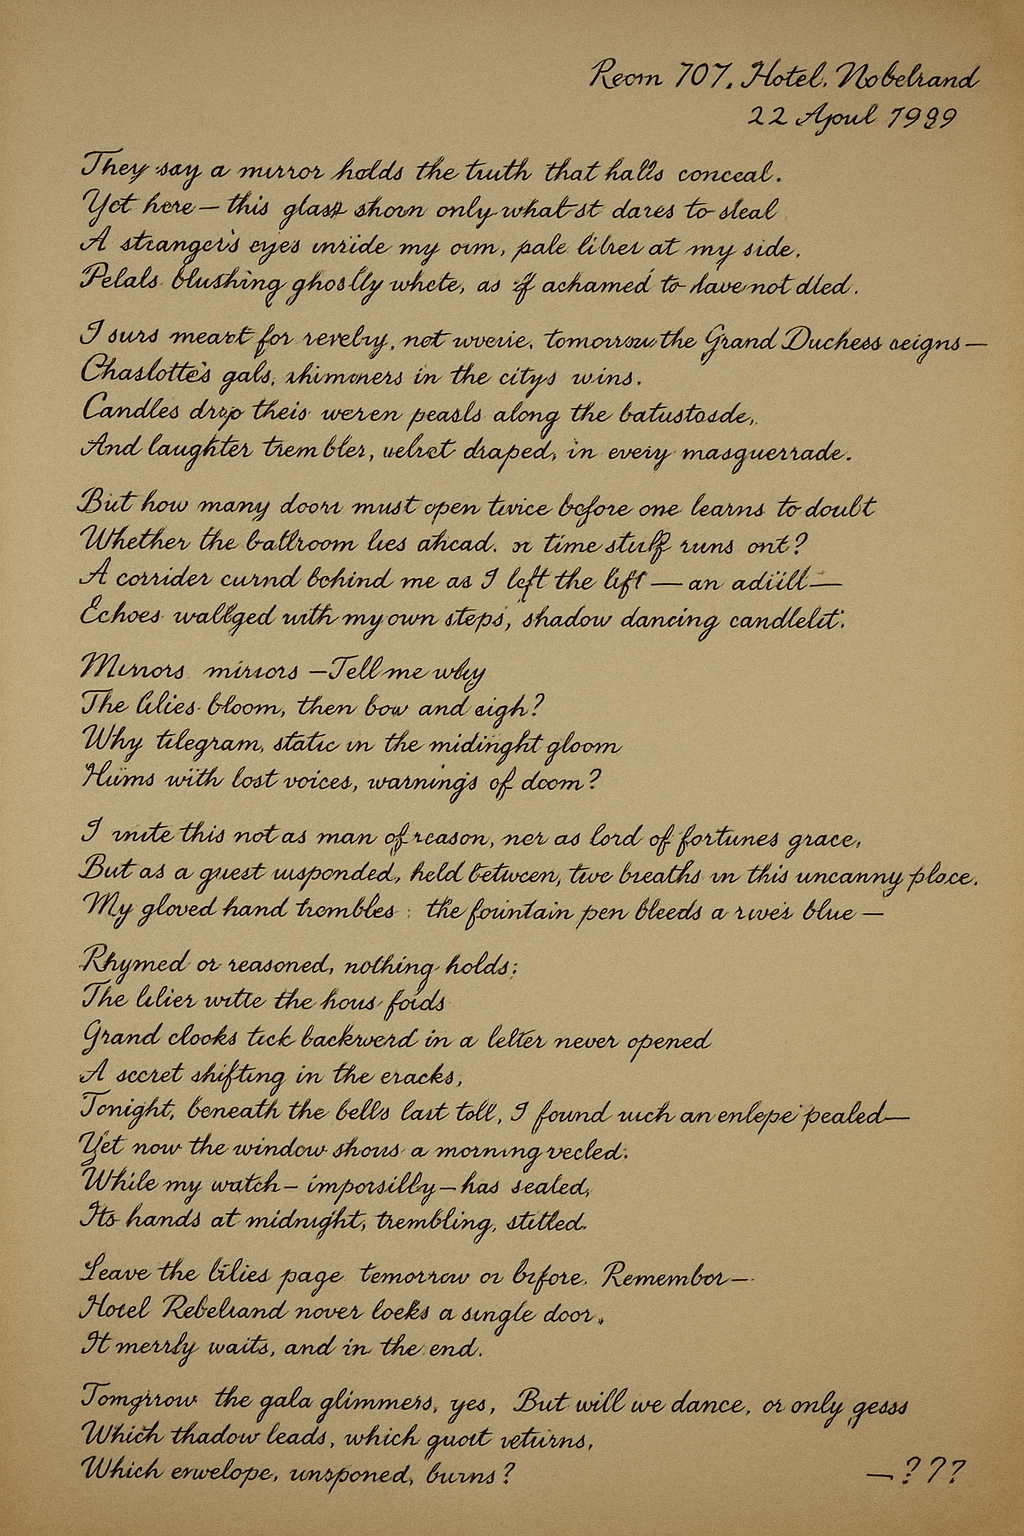 Room 707, Hotel, Nobelrand
22 Apul 1999
They say a mirror holds the truth that halls conceal.
Yet here – this glass shorn only what st dares to steal
A stranger's eyes inside my own, pale lilies at my side.
Pelals blushing ghoslly whete, as if achamed to have not dled.
I surs meart for revelry, not woerie. tomorrow the Grand Duchess reigns —
Chaslotte's gals, shimmers in the citys wins.
Candles drip theis weren peasls along the batustosde,
And laughter trembler, velret draped, in every masguerrade.
But how many doors must open twice before one learns to doubt
Whether the ballroom lies ahead. or time stulf runs ont?
A corrider curnd behind me as I left the lift — an adüill —
Echoes wallged with my own steps, shadow dancing candlelit.
Mirrors mirrors – Tell me why
The lilies bloom, then bow and sigh?
Why telegram, static in the midinght gloom
Hums with lost voices, warnings of doom?
I write this not as man of reason, ner as lord of fortunes grace,
But as a guest usponded, held between, two breaths in this uncanny place.
My gloved hand trembles : the fountain pen bleeds a rives blue —
Rhymed or reasoned, nothing holds;
The lilier witte the hous foids
Grand clooks tick backwerd in a letter never opened
A secret shifting in the cracks,
Tonight, beneath the bells last toll, I found such an enlepe pealed—
Yet now the window shous a morning vecled.
While my watch – imporsilly – has sealed,
Its hands at midnight, trembling, stitled.
Leave the lilies page tomorrow or before. Remembor –
Hotel Rebelrand nover locks a single door.
It merrly waits, and in the end.
Tomgrrow the gala glimmers, yes, But will we dance, or only gesss
Which thadow leads, which guort veturns,
Which envelope, unsponed, burns?
—???